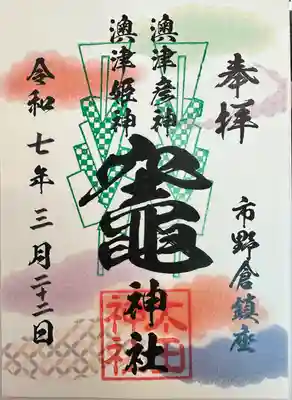 奉拝
市野倉鎮座
澳津彦神
澳津姫神
竈神社
太田神社
令和七年三月二十二日